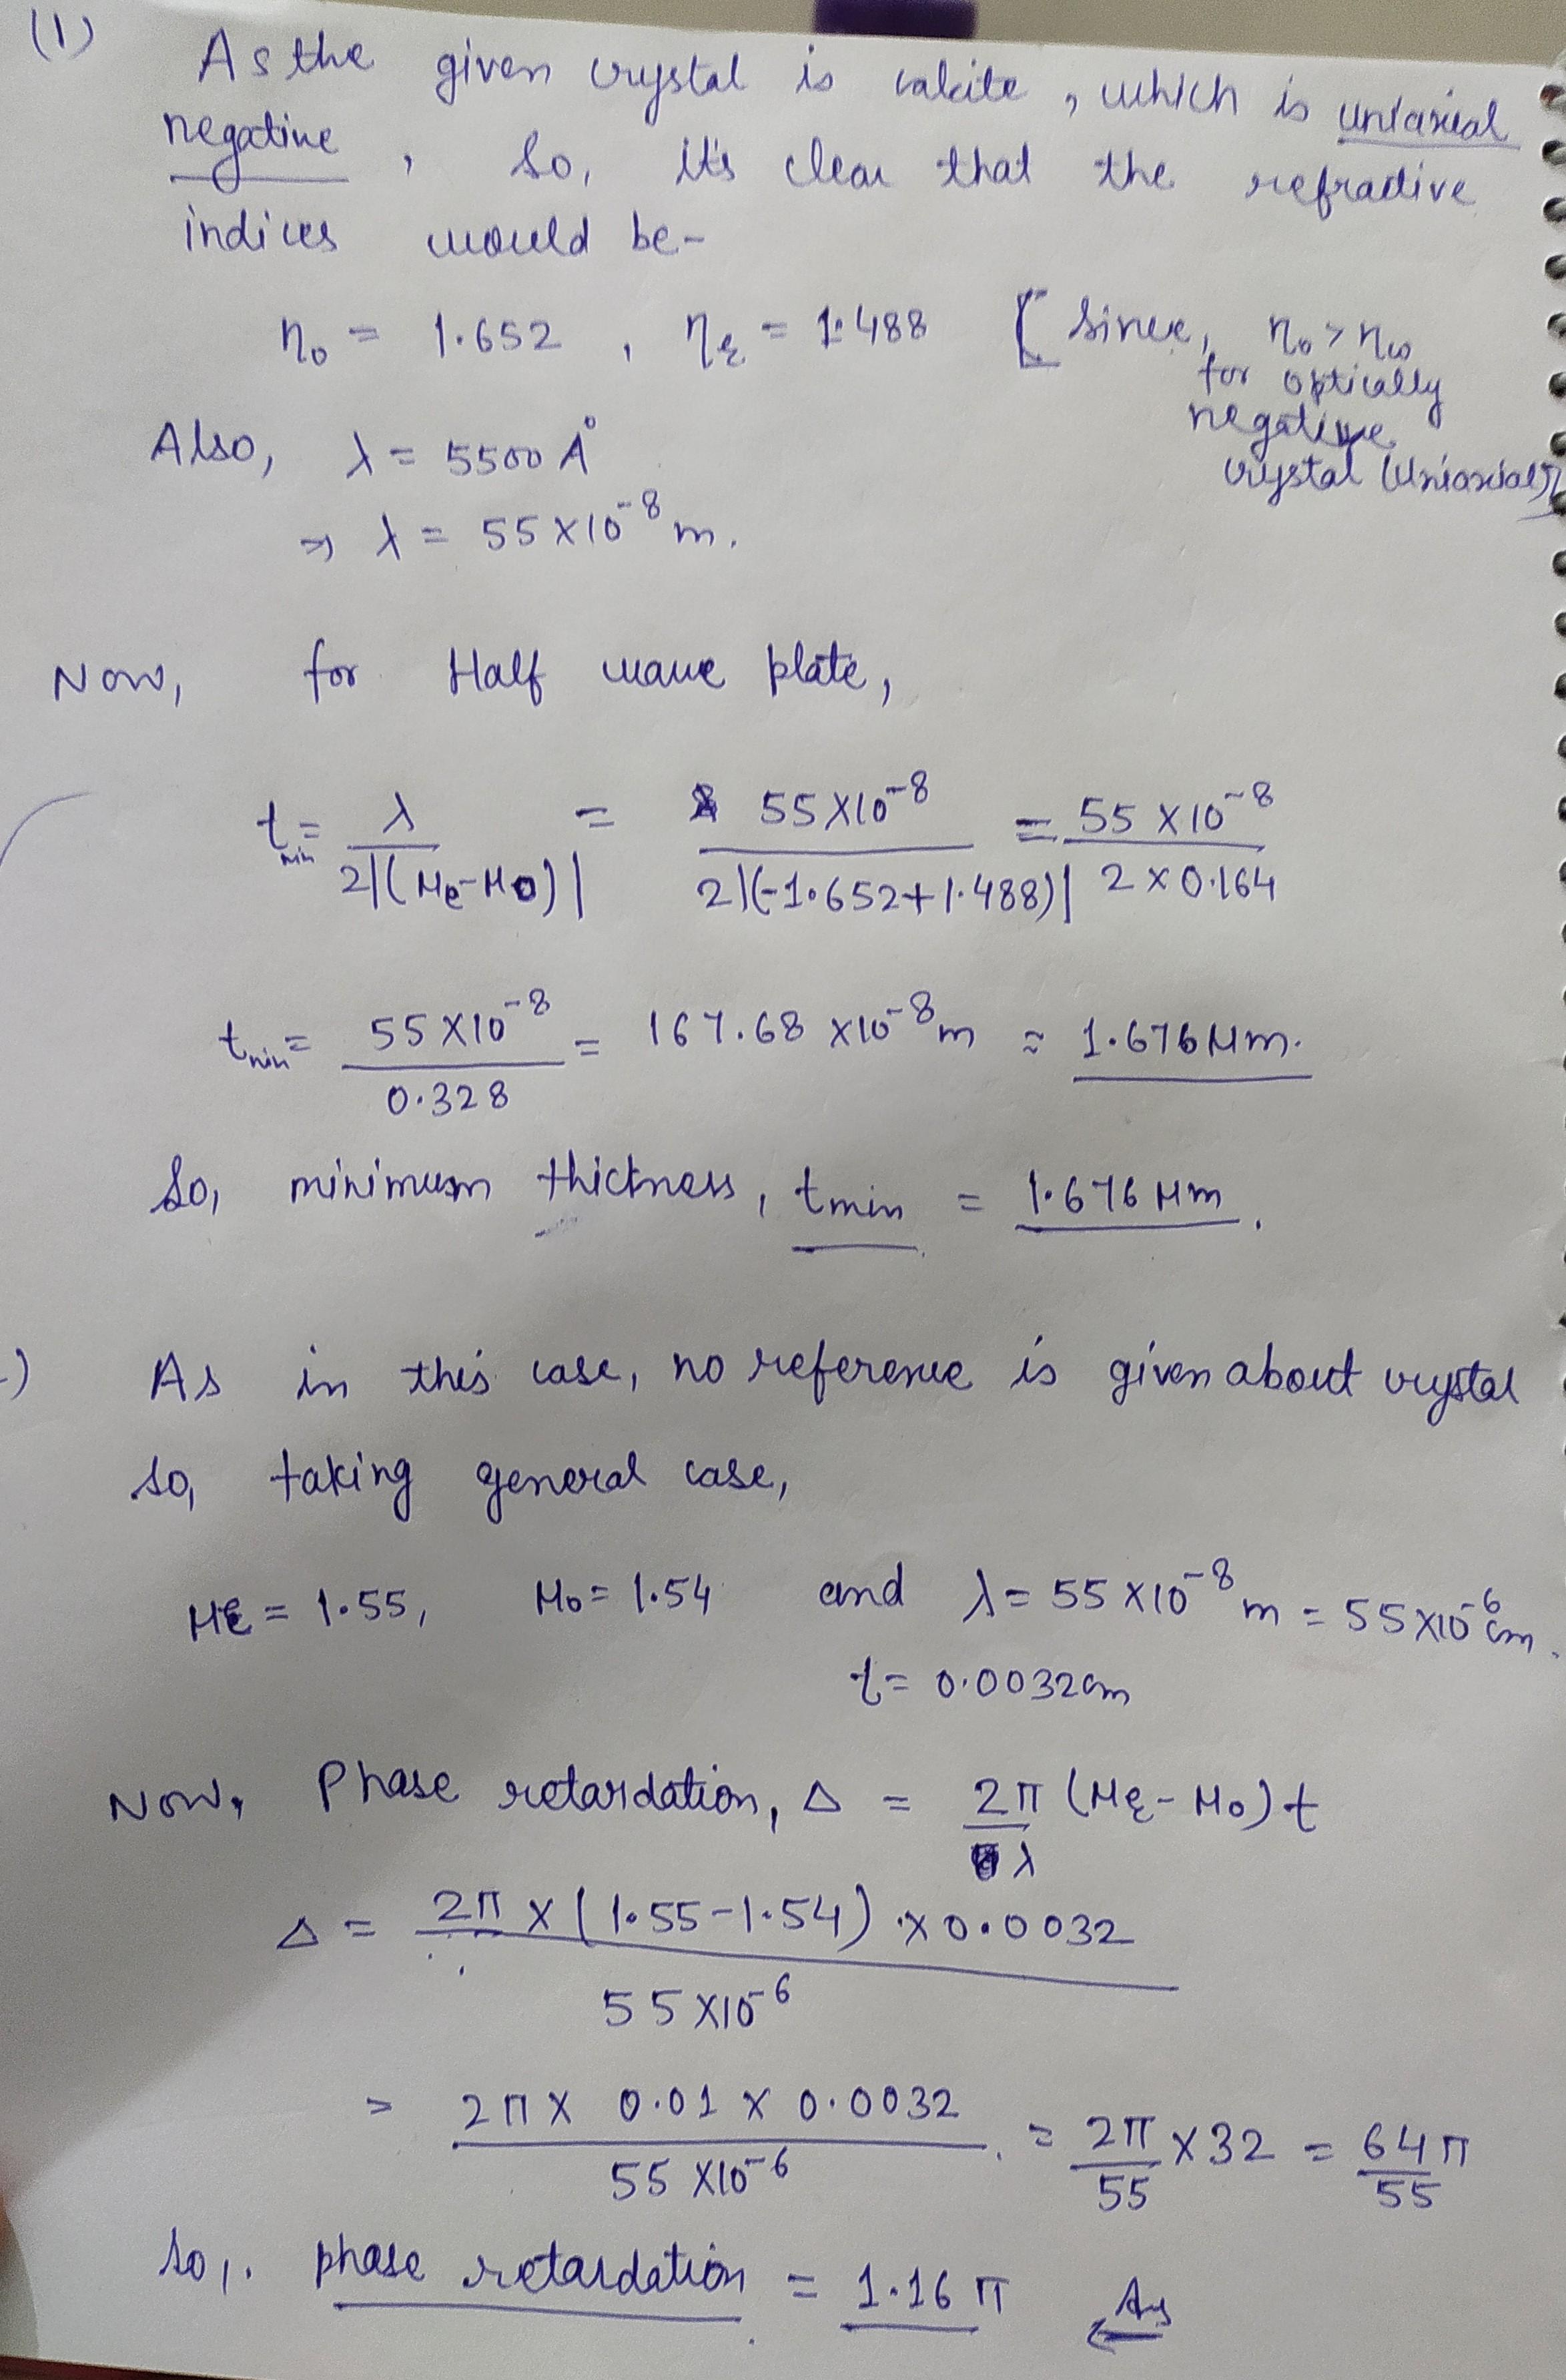 (1) As the given crystal is calcite, which is uniaxial
negative, So, it's clear that the refractive
indices would be-
n₀ = 1.652, nε = 1.488 [Since, n₀ > n
for optically
negative
crystal (Uniaxial)]
Also, λ = 5500 Å
⇒ λ = 55×10⁻⁸ m.
Now, for Half wave plate,
t_min = λ / 2|(μe-μo)| = 55×10⁻⁸ / 2|(-1.652+1.488)| = 55×10⁻⁸ / 2×0.164
t_min = 55×10⁻⁸ / 0.328 = 167.68×10⁻⁸ m ≈ 1.676 μm.
So, minimum thickness, tmin = 1.676 μm.
) As in this case, no reference is given about crystal
so, taking general case,
με = 1.55, μo = 1.54 and λ = 55×10⁻⁸ m = 55×10⁻⁶ cm.
t = 0.0032 cm
Now, Phase retardation, Δ = 2π/λ (με-μo)t
Δ = 2π × (1.55-1.54) × 0.0032 / 55×10⁻⁶
= 2π × 0.01 × 0.0032 / 55×10⁻⁶ = 2π/55 × 32 = 64π/55
So, phase retardation = 1.16 π Ans